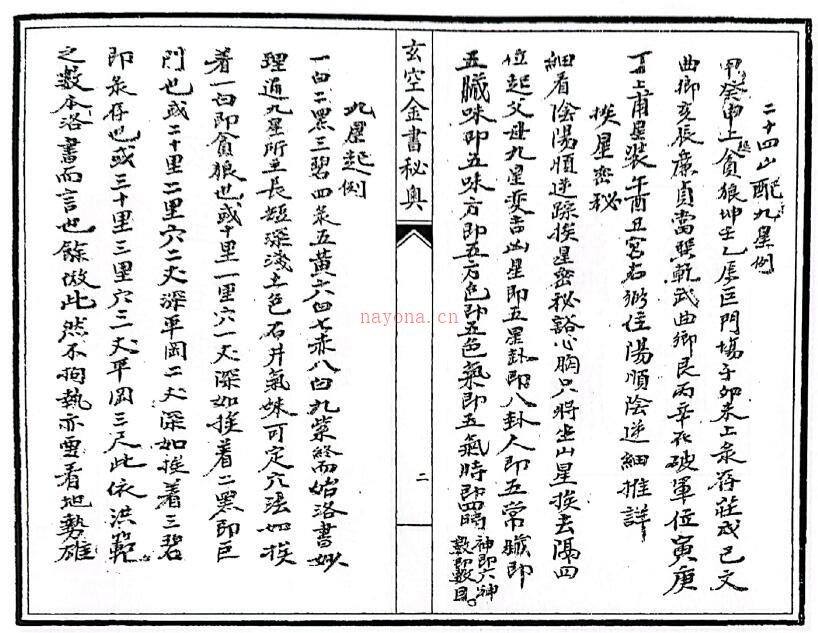 二十四山配九星例
甲癸申上起貪狼坤壬乙居巨門塲子卯未上录存莊戌巳文
曲鄉亥辰廉貞當巽乾武曲鄉艮丙辛在破軍位寅庚
丁上甫星裝午酉丑宮右弼住陽順陰逆細推詳
挨星密秘
細看陰陽順逆踪挨星密秘豁心胸只將坐山星挨去隔四
位起父母九星変吉凶星即五星卦即八卦人即五常臟即
五臟味即五味方即五方色即五色氣即五氣時即四時
神即六神
数即数目
玄空金書秘奧
二
九星起例
一白二黑三碧四录五黃六白七赤八白九紫終而始洛書妙
理通九星所主長短深淺土色石井氣味可定穴法如挨
着一白即貪狼也或十里一里穴一丈深如挨着二黑即巨
門也或二十里二里穴二丈深平岡二丈深如挨着三碧
即录存也或三十里三里穴三丈平岡三尺此依洪範
之数本洛書而言也餘倣此然不拘執亦要看地勢雄
nayona.cn